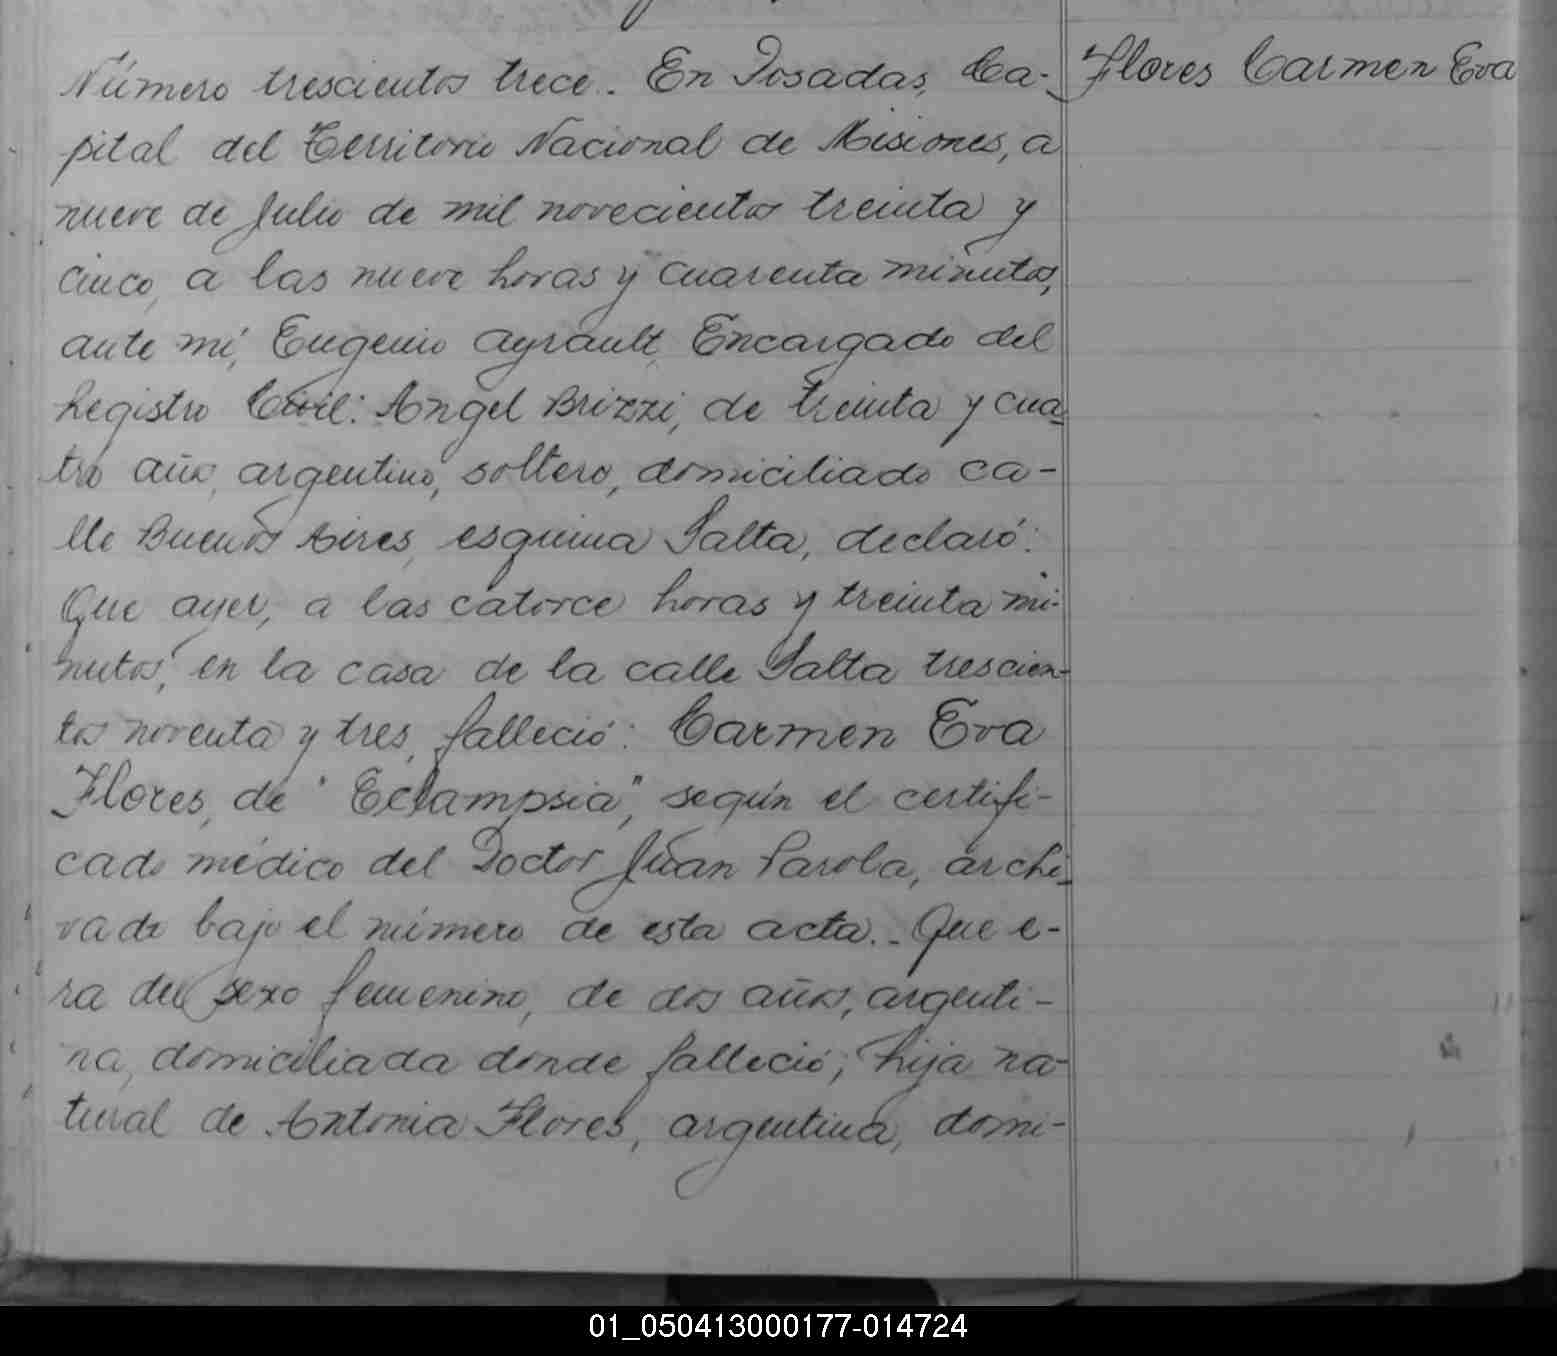 Número trescientos trece. En Posadas, Ca- Flores Carmen Eva
pital del Territorio Nacional de Misiones, a
nueve de Julio de mil novecientos treinta y
cinco, a las nueve horas y cuarenta minutos,
ante mí, Eugenio Ayrault, Encargado del
Registro Civil: Angel Brizzi, de treinta y cua-
tro años, argentino, soltero, domiciliado ca-
lle Buenos Aires, esquina Salta, declaró:
Que ayer, a las catorce horas y treinta mi-
nutos, en la casa de la calle Salta trescien-
tos noventa y tres, falleció: Carmen Eva
Flores, de "Eclampsia", según el certifi-
cado médico del Doctor Juan Parola, archi-
vado bajo el número de esta acta.- Que e-
ra del sexo femenino, de dos años, argenti-
na, domiciliada donde falleció; hija na-
tural de Antonia Flores, argentina, domi-
01_050413000177-014724